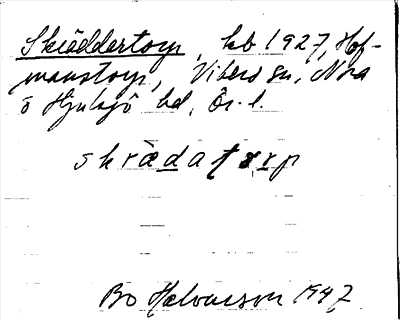 Skräddertorp, kb 1927, Hof-
manstorp, Vibers sn, Nora
o Hjulsjö hd, Ör. l.
skrädatorp
Bo Halvarson 1947